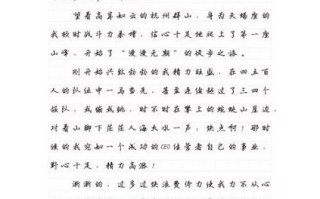 望着高耸如云的杭州群山，身为天蝎座的
我顿时战斗力暴增，信心十足地爬上了第一座
山峰，开始了“漫漫无期”的徒步之旅。
刚开始兴致勃勃的我精力旺盛，在四五百
人的队伍中一马当先，甚至连接超过了三四个
旗队，蹦蹦跳跳，时不时在攀上的蜿蜒山崖边，
对着山脚下茫茫人海大吼一声：快点啊！那时
候的我宛如一个成功的CEO经营者自己的事业，
野心十足，精力高涨！
渐渐的，过多过快浪费体力使我力不从心